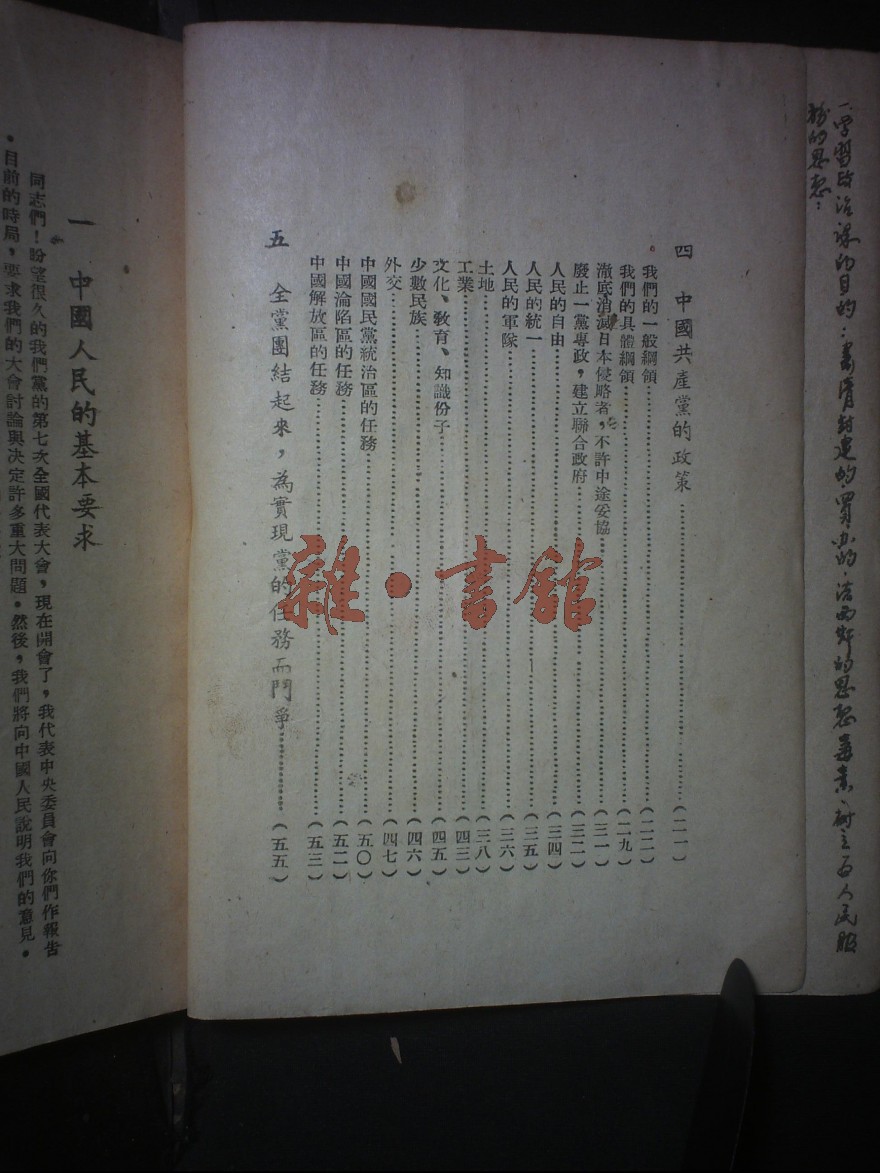 一、学習政治課的目的：肅清封建的買办的、法西斯的思想毒素、树立为人民服
務的思想：
四　中國共產黨的政策……（二一）
我們的一般綱領……（二二）
我們的具體綱領……（二九）
澈底消滅日本侵略者，不許中途妥協……（三一）
廢止一黨專政，建立聯合政府……（三二）
人民的自由……（三四）
人民的統一……（三五）
人民的軍隊……（三六）
土地……（三八）
工業……（四三）
文化、敎育、知識份子……（四五）
少數民族……（四六）
外交……（四七）
中國國民黨統治區的任務……（五〇）
中國淪陷區的任務……（五二）
中國解放區的任務……（五三）
五　全黨團結起來，為實現黨的任務而鬥爭……（五五）
一　中國人民的基本要求
同志們！盼望很久的我們黨的第七次全國代表大會，現在開會了，我代表中央委員會向你們作報告
。目前的時局，要求我們的大會討論與决定許多重大問題。然後，我們將向中國人民說明我們的意見。
雜·書館